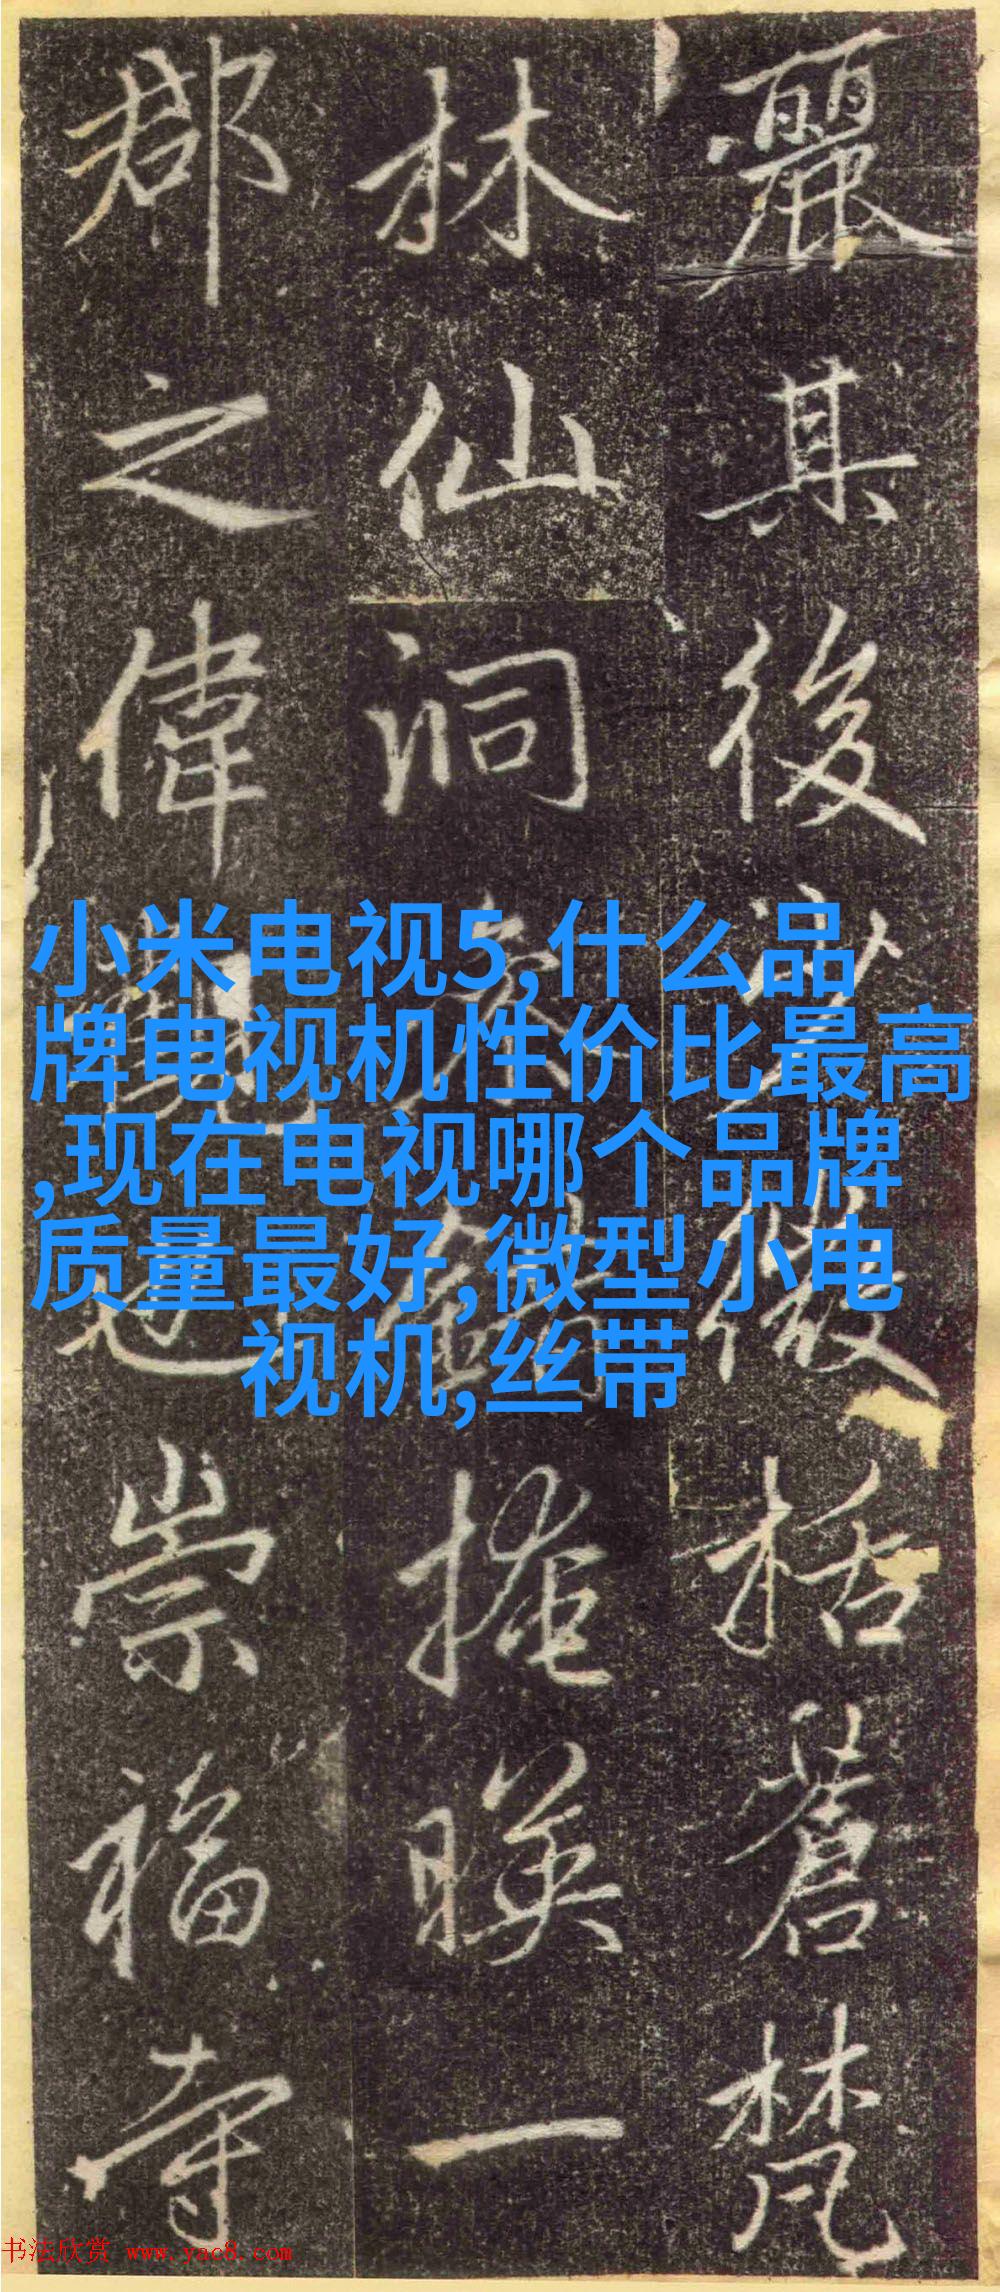 麗其後
括蒼梵
林仙洞
掩暎一
郡之偉
崇福寺
小米电视5,什么品
牌电视机性价比最高
,现在电视哪个品牌
质量最好,微型小电
视机,丝带
书法欣赏 www.yac8.com